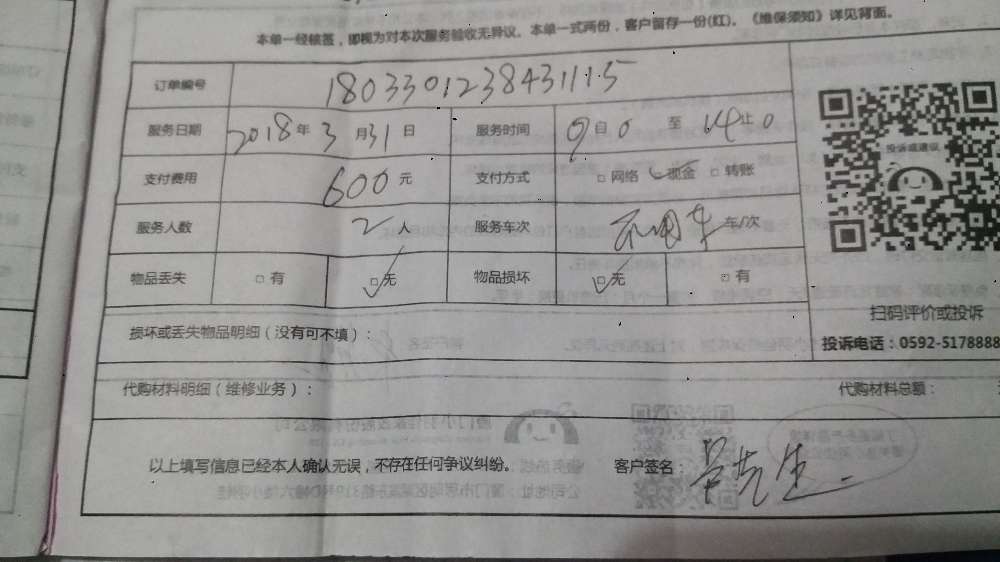 本单一经核签,即视为对本次服务验收无异议。本单一式两份,客户留存一份(红)。《维保须知》详见背面。
订单编号 1803301238431115
服务日期 2018年3月31日 服务时间 9自0至14止0
支付费用 600元 支付方式 □网络 ☑现金 □转账
服务人数 2人 服务车次 不用车 车/次
物品丢失 □有 ☑无 物品损坏 ☑无 □有
投诉或建议
扫码评价或投诉
投诉电话:0592-5178888
损坏或丢失物品明细(没有可不填):
代购材料明细(维修业务): 代购材料总额:
以上填写信息已经本人确认无误,不存在任何争议纠纷。 客户签名:吴先生